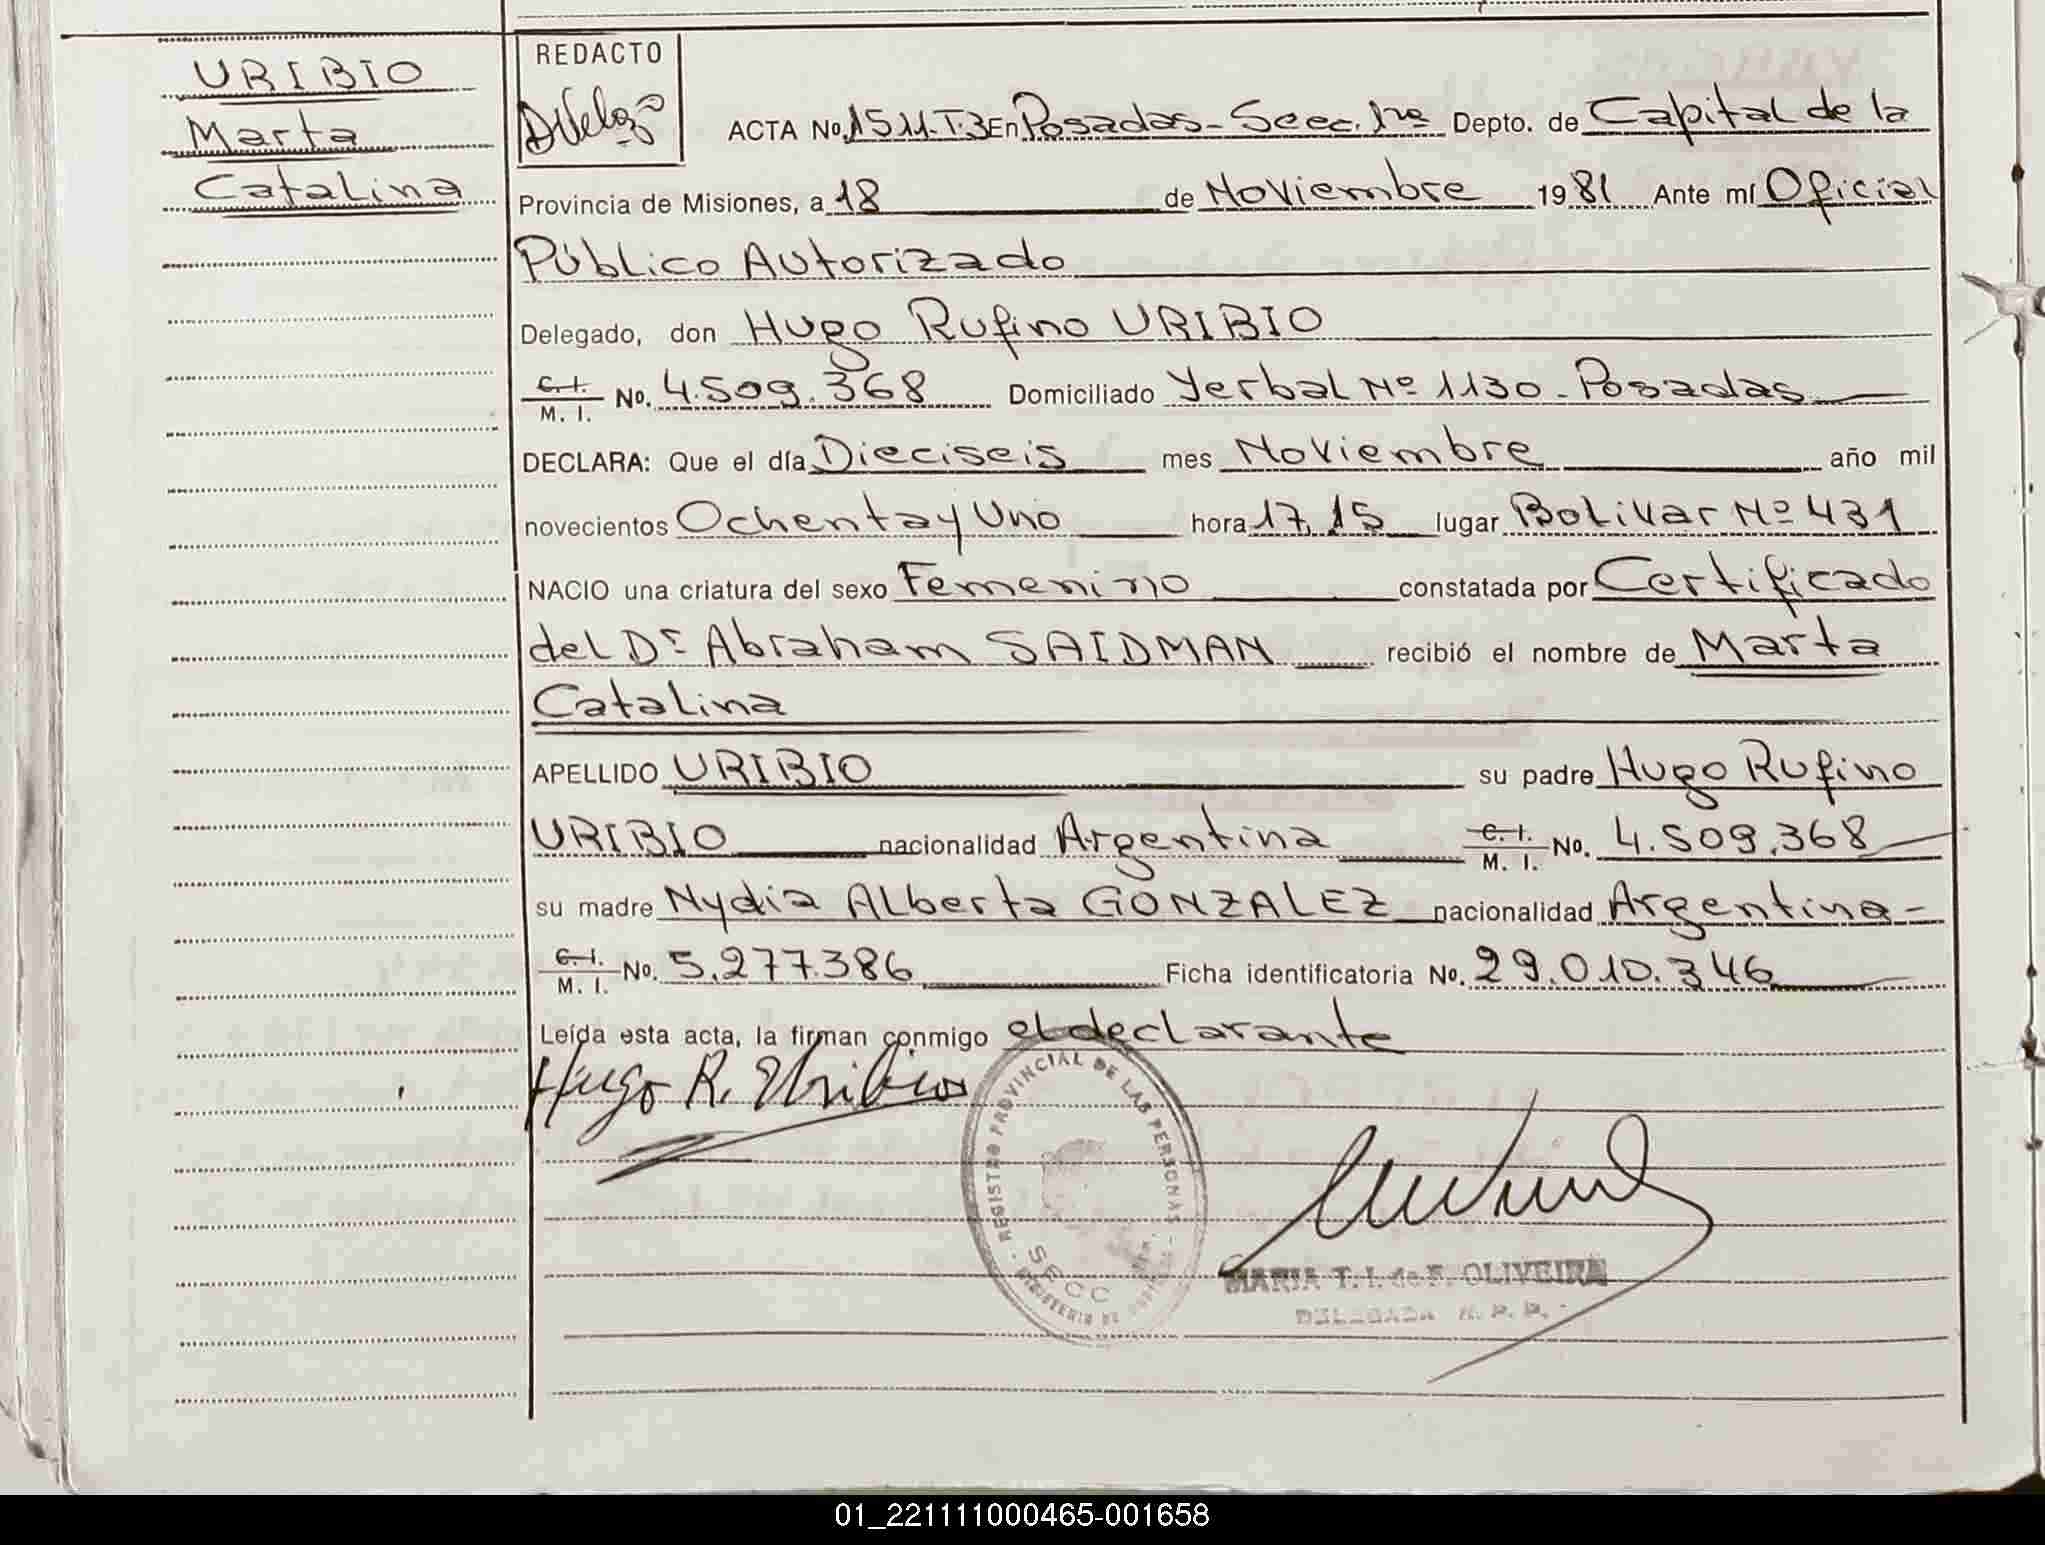 URIBIO
Marta
Catalina
REDACTO
ACTA No. 1511-T.3 En Posadas-Secc. 1ra Depto. de Capital de la
Provincia de Misiones, a 18 de Noviembre 1981 Ante mí Oficial
Público Autorizado
Delegado, don Hugo Rufino URIBIO
C. I. / M. I. No. 4.509.368 Domiciliado Yerbal Nº 1130-Posadas
DECLARA: Que el día Dieciseis mes Noviembre año mil
novecientos Ochenta y Uno hora 17,15 lugar Bolivar Nº 431
NACIO una criatura del sexo Femenino constatada por Certificado
del Dr Abraham SAIDMAN recibió el nombre de Marta
Catalina
APELLIDO URIBIO su padre Hugo Rufino
URIBIO nacionalidad Argentina C. I. / M. I. No. 4.509.368
su madre Nydia Alberta GONZALEZ nacionalidad Argentina-
C. I. / M. I. No. 5.277.386 Ficha identificatoria No. 29.010.346
Leída esta acta, la firman conmigo el declarante
Hugo R. Uribio
REGISTRO PROVINCIAL DE LAS PERSONAS
SECC
MARIA T. I. de F. OLIVEIRA
DELEGADA R. P. P.
01_221111000465-001658